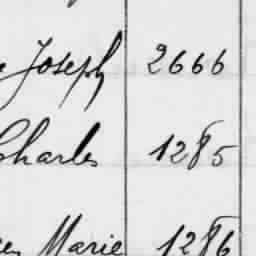 Joseph 2666
Charles 1285
Marie 1286